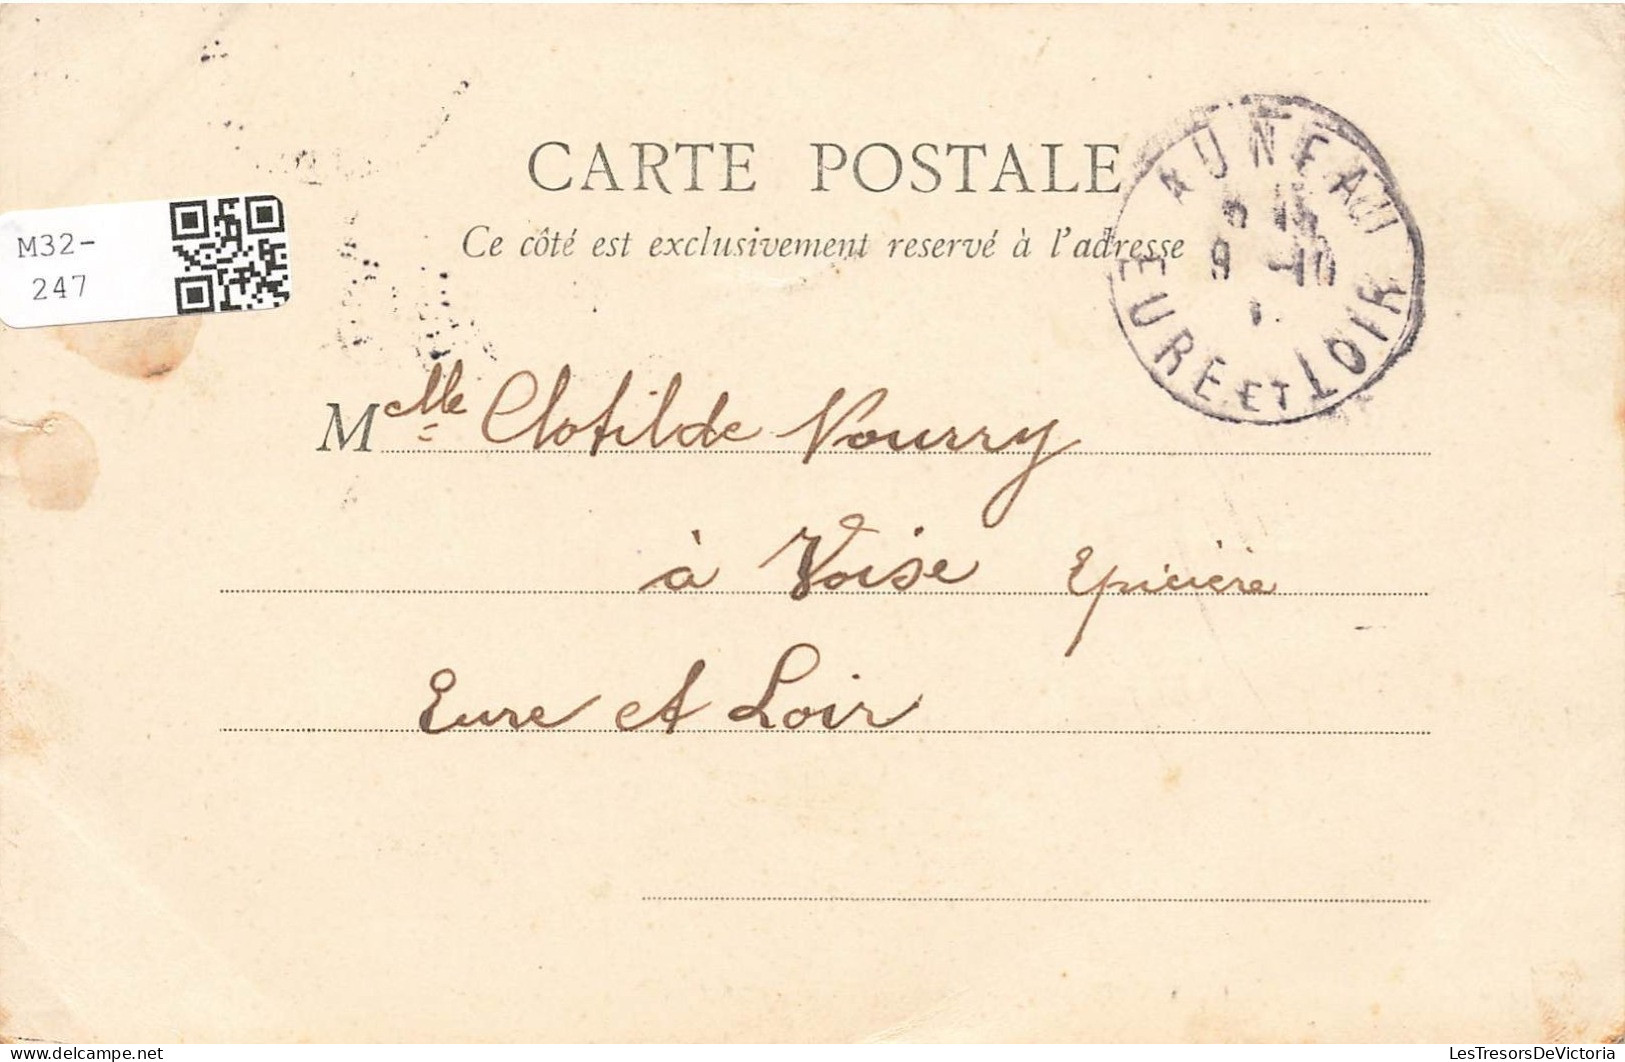 CARTE POSTALE
Ce côté est exclusivement reservé à l'adresse
AUNEAU
9 -10
EURE ET LOIR
M32-
247
Melle Clotilde Nourry
à Voise Epicière
Eure et Loir
LesTresorsDeVictoria